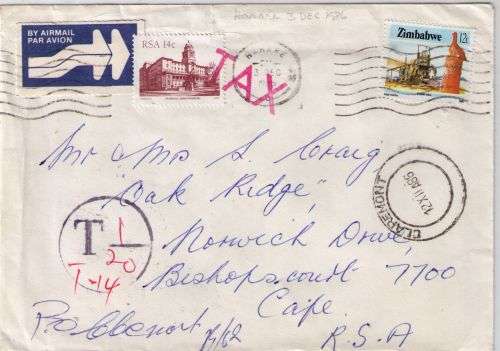 HARARE 3 DEC 1986
BY AIRMAIL
PAR AVION
RSA 14c
HARARE
TAX
Zimbabwe 12c
Mr & Mrs S. Craig
"Oak Ridge"
Norwich Drive,
Bishopscourt 7700
Cape
R.S.A
CLAREMONT
12 XII 86
T 1/20
T-14